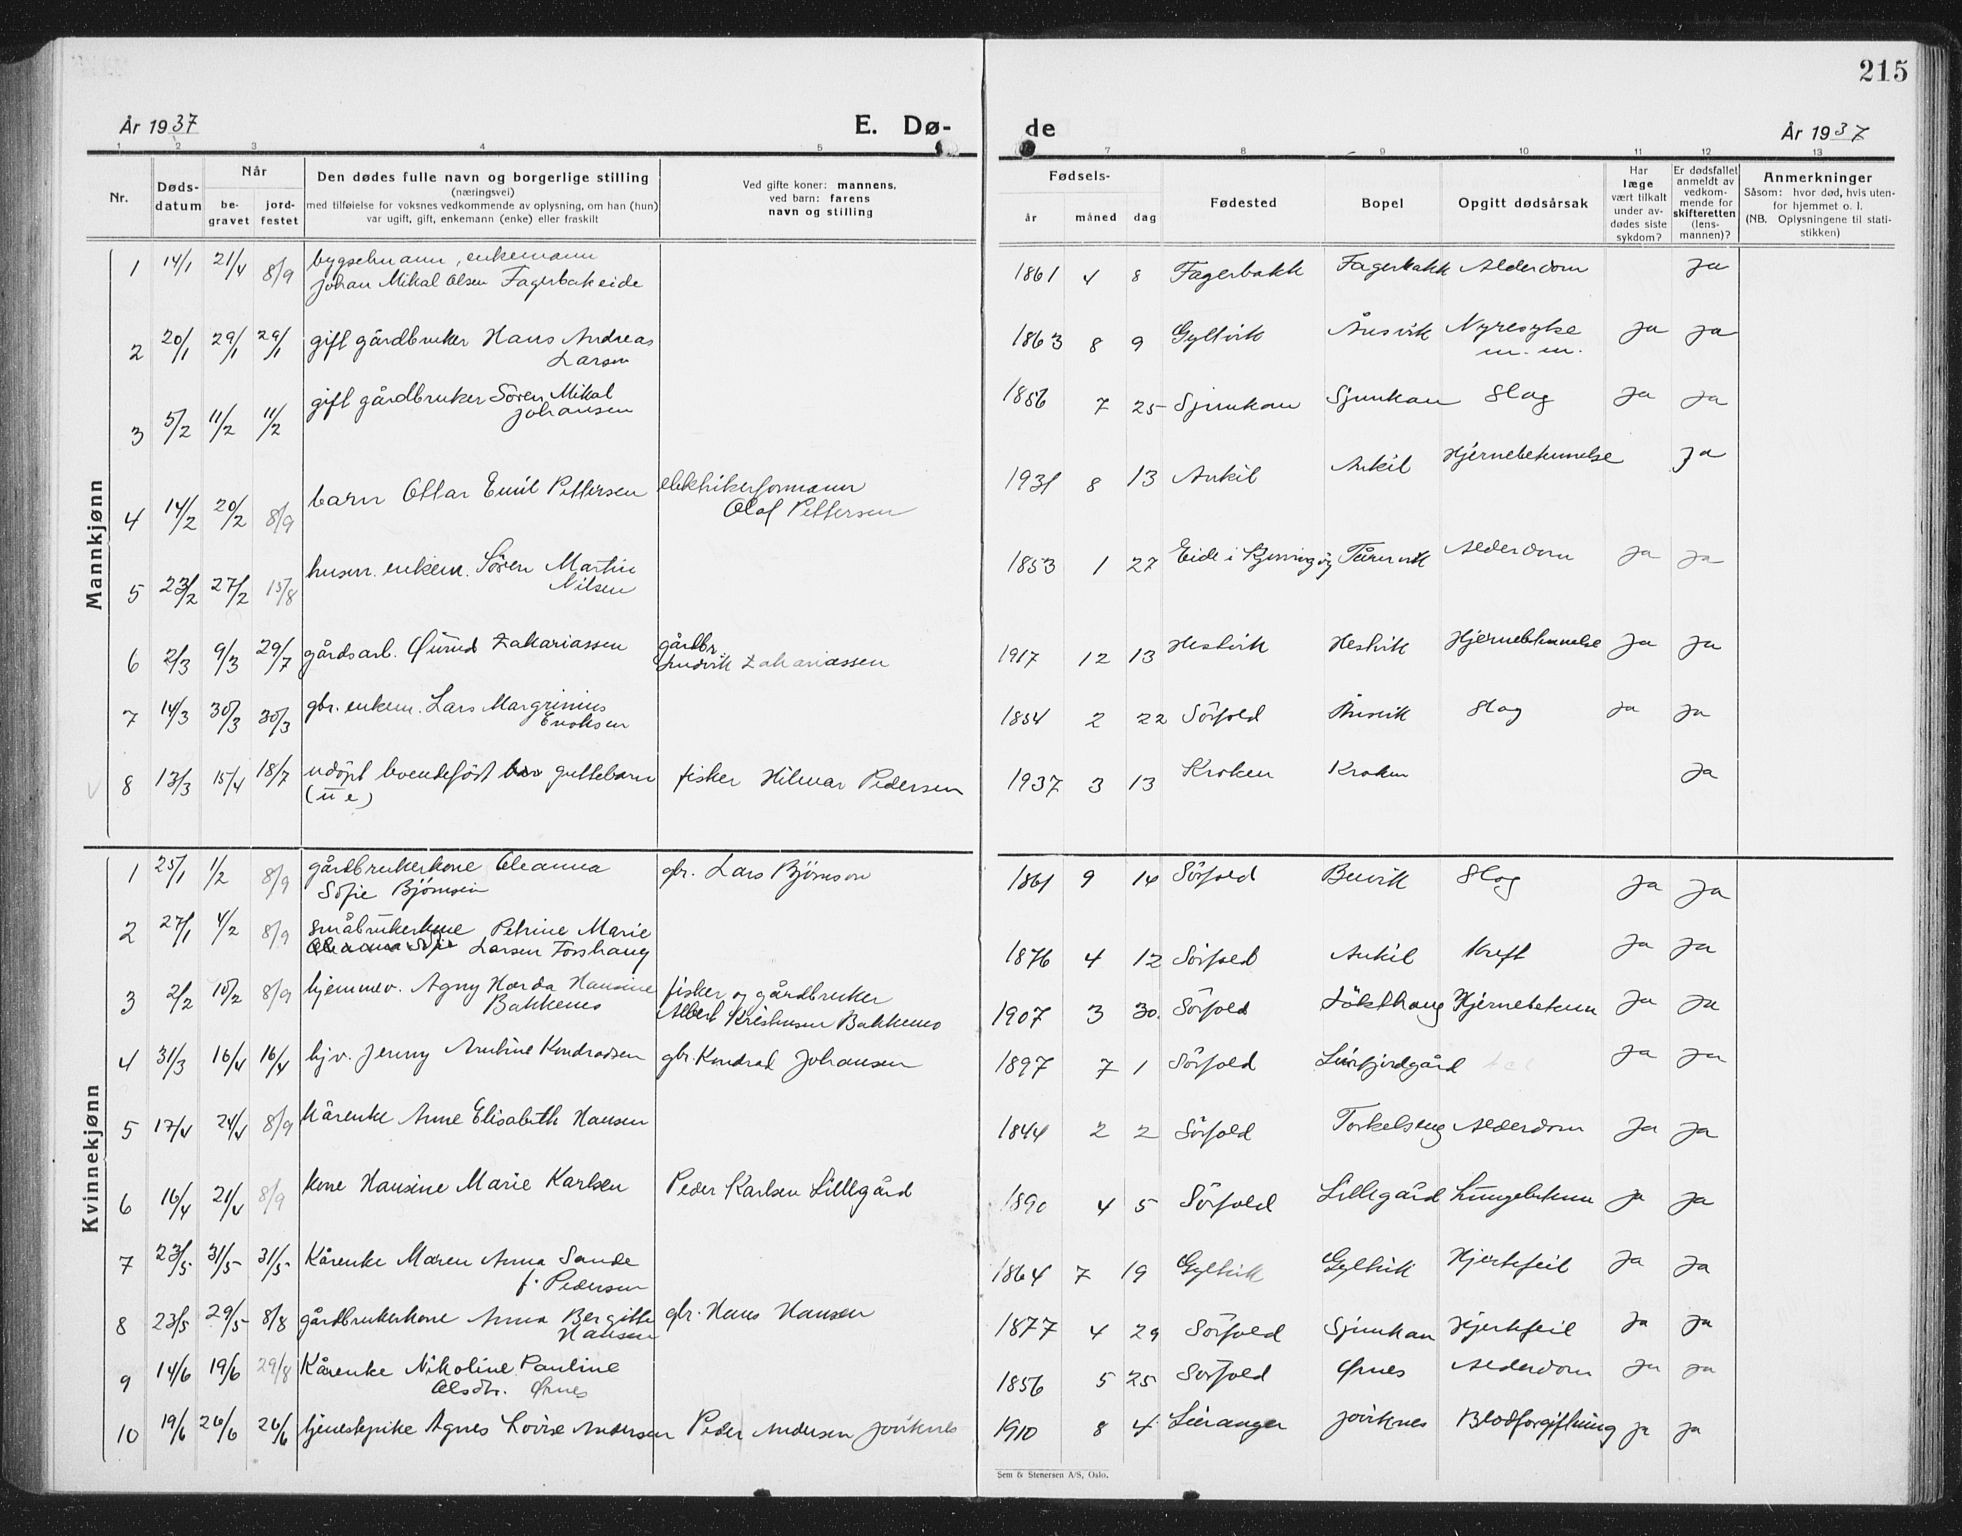 215
År 1937
E. Dø-
de
År 1937
1 2 3 4 5
7 8 9 10 11 12 13
Nr.
Døds-
datum
Når
be-
gravet
jord-
festet
Den dødes fulle navn og borgerlige stilling
(næringsvei)
med tilføielse for voksnes vedkommende av oplysning, om han (hun)
var ugift, gift, enkemann (enke) eller fraskilt
Ved gifte koner: mannens,
ved barn: farens
navn og stilling
Fødsels-
år
måned
dag
Fødested
Bopel
Opgitt dødsårsak
Har
læge
vært tilkalt
under av-
dødes siste
sykdom?
Er dødsfallet
anmeldt av
vedkom-
mende for
skifteretten
(lens-
mannen)?
Anmerkninger
Såsom: hvor død, hvis uten-
for hjemmet o. l.
(NB. Oplysningene til stati-
stikken)
Mannkjønn
1 14/1 21/4 8/9 bygselmann, enkemann
Johan Mikal Olsen Fagerbakeide
1861 4 8 Fagerbakk Fagerbakk Alderdom ja
2 20/1 29/1 29/1 gift gårdbruker Hans Andreas
Larsen
1863 8 9 Gyltvik Ånsvik Nyresyke ja ja
m. m.
3 5/2 11/2 11/2 gift gårdbruker Sören Mikal
Johansen
1856 7 25 Sjunkan Sjunkan Slag ja ja
4 14/2 20/2 8/9 barn Ottar Emil Pettersen elektrikerformann
Olaf Pettersen
1931 8 13 Ankil Ankil Hjernebetennelse ja
5 23/2 27/2 15/8 husm. enkem. Sören Martin
Nilsen
1853 1 27 Eide i Kjerringöy Tårnvik Alderdom ja ja
6 2/3 9/3 29/7 gårdsarb. Øivind Zakariassen gårdbr.
Hedvik Zakariassen
1917 12 13 Hestvik Hestvik Hjernebetennelse ja ja
7 14/3 30/3 30/3 gbr. enkem. Lars Margrinius
Enoksen
1854 2 22 Sörfold Ånsvik Slag ja ja
8 13/3 15/4 18/7 udöpt levendefödt guttebarn fisker Hilmar Pedersen
(u e)
1937 3 13 Kroken Kroken ja
Kvinnekjønn
1 25/1 1/2 8/9 gårdbrukerkone Oleanna gbr. Lars Björnson
Sofie Björnsen
1861 9 14 Sörfold Buvik Slag ja ja
2 27/1 4/2 8/9 småbrukerkone Petrine Marie
Oleanna Sofie Larsen Forshaug
1876 4 12 Sörfold Ankil Kreft ja ja
3 2/2 10/2 8/9 hjemmev. Agny Harda Hansine fisker og gårdbruker
Bakkenes Albert Kristensen Bakkenes
1907 3 30. Sörfold Lökthaug Hjernebeten ja ja
4 31/3 16/4 16/4 hjv. Jenny Arntine Kondradsen gbr. Kondrad Johansen
1897 7 1 Sörfold Leirfjordgård ja ja
5 17/4 24/4 8/9 kårenke Anne Elisabeth Hansen
1844 2 2 Sörfold Torkelseng Alderdom ja ja
6 16/4 21/4 8/9 kone Hansine Marie Karlsen Peder Karlsen Lillegård
1890 4 5 Sörfold Lillegård Lungebeten ja ja
7 23/5 31/5 31/5 Kårenke Maren Anna Sande
f. Pedersen
1864 7 19 Gyltvik Gyltvik Hjertefeil ja ja
8 23/5 29/5 8/8 gårdbrukerkone Anna Bergitte gbr. Hans Hansen
Hansen
1877 4 29 Sörfold Sjunkan Hjertefeil ja ja
9 14/6 19/6 29/8 Kårenke Nikoline Pauline
Olsdtr. Ørnes
1856 5 25 Sörfold Ørnes Alderdom ja ja
10 19/6 26/6 26/6 tjenestepike Agnes Lovise Andersen Peder Andersen Jöviknes
1910 8 4 Leiranger Jöviknes Blodforgiftning ja ja
Sem & Stenersen A/S, Oslo.